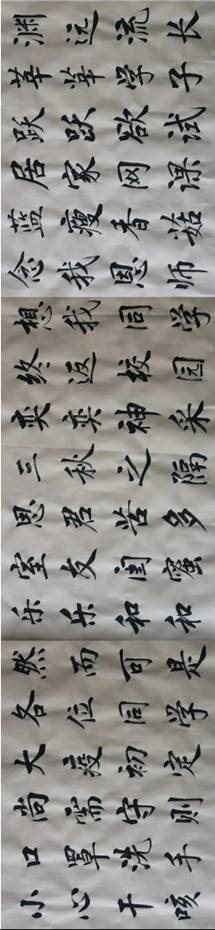 渊远流长
莘莘学子
跃跃欲试
居家网课
蓝瘦香菇
念我恩师
想我同学
终返校园
奕奕神采
三秋之隔
思君苦多
室友闺蜜
乐乐和和
然而可是
各位同学
大疫初定
尚需守则
口罩洗手
小心干咳